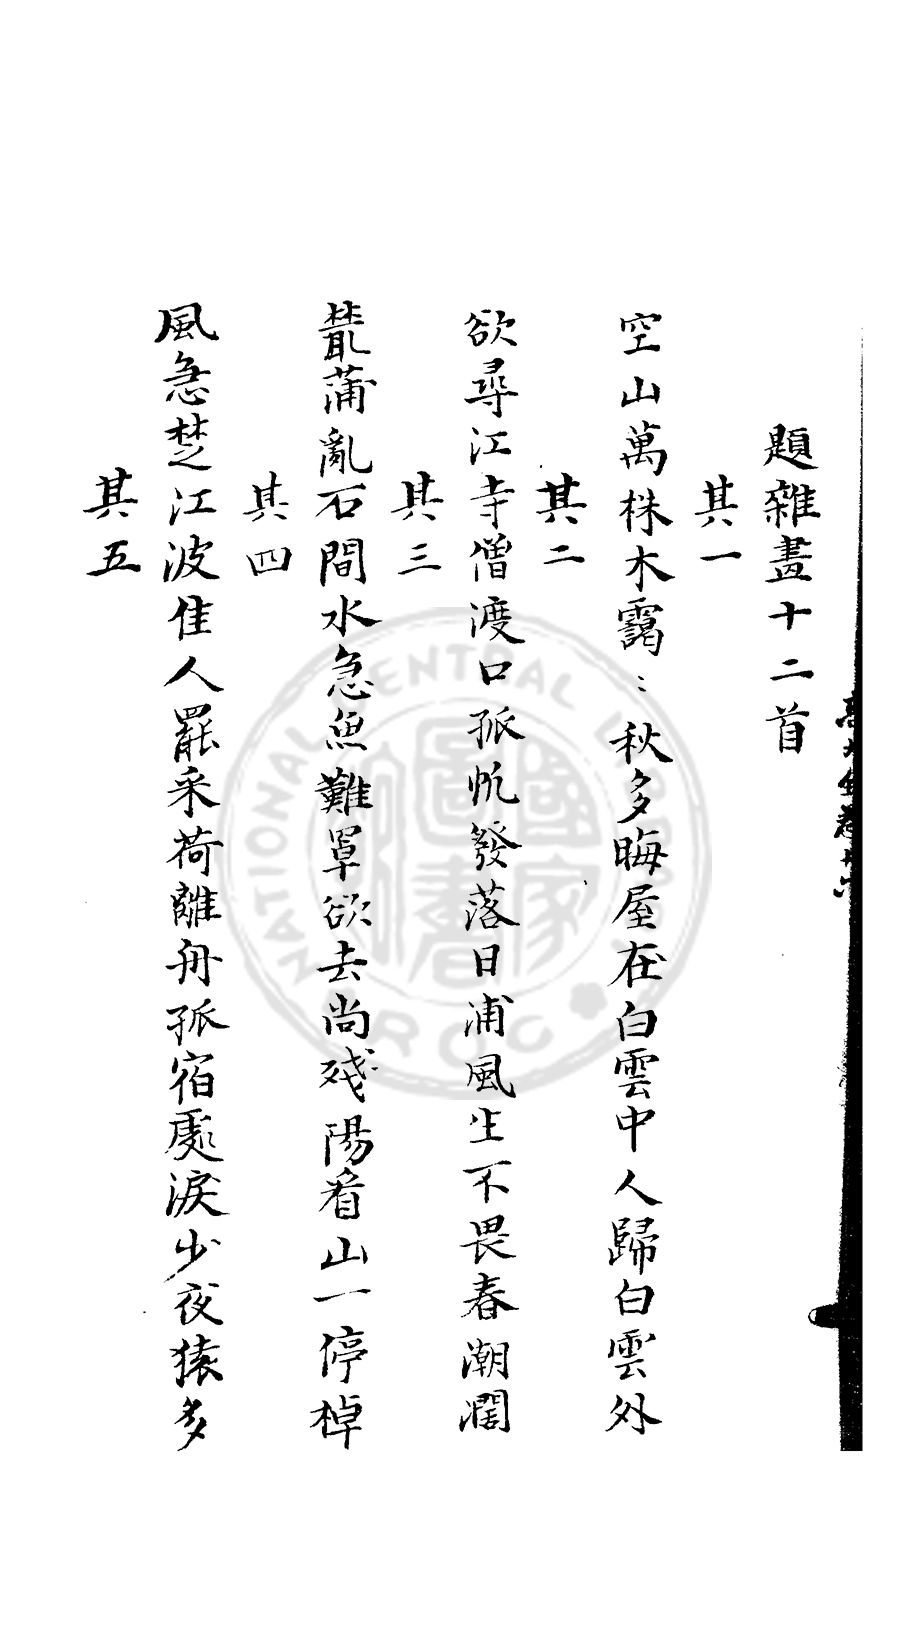 題雜畫十二首
其一
空山萬株木靄〻秋多晦屋在白雲中人歸白雲外
其二
欲尋江寺僧渡口孤帆發落日浦風生不畏春潮濶
其三
藂蒲亂石間水急魚難罩欲去尚殘陽看山一停棹
其四
風急楚江波佳人罷采荷離舟孤宿處淚少夜猿多
其五
NATIONAL CENTRAL LIBRARY R.O.C.
國家圖書館